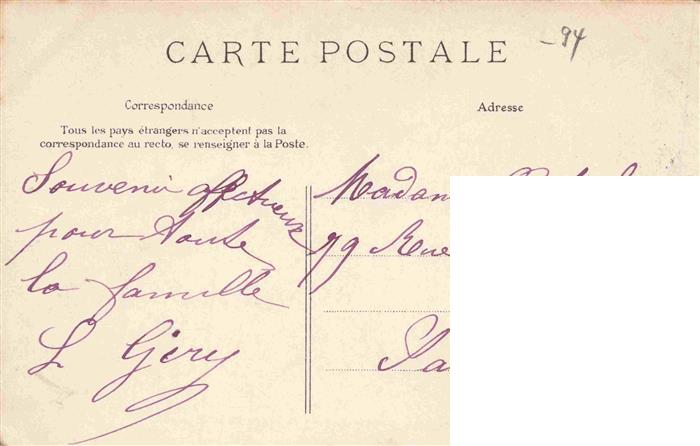 -94
CARTE POSTALE
Correspondance
Adresse
Tous les pays étrangers n'acceptent pas la
correspondance au recto, se renseigner à la Poste.
Souvenir affectueux
pour toute
la famille
L Géry
Madam
79 Rue
Pa